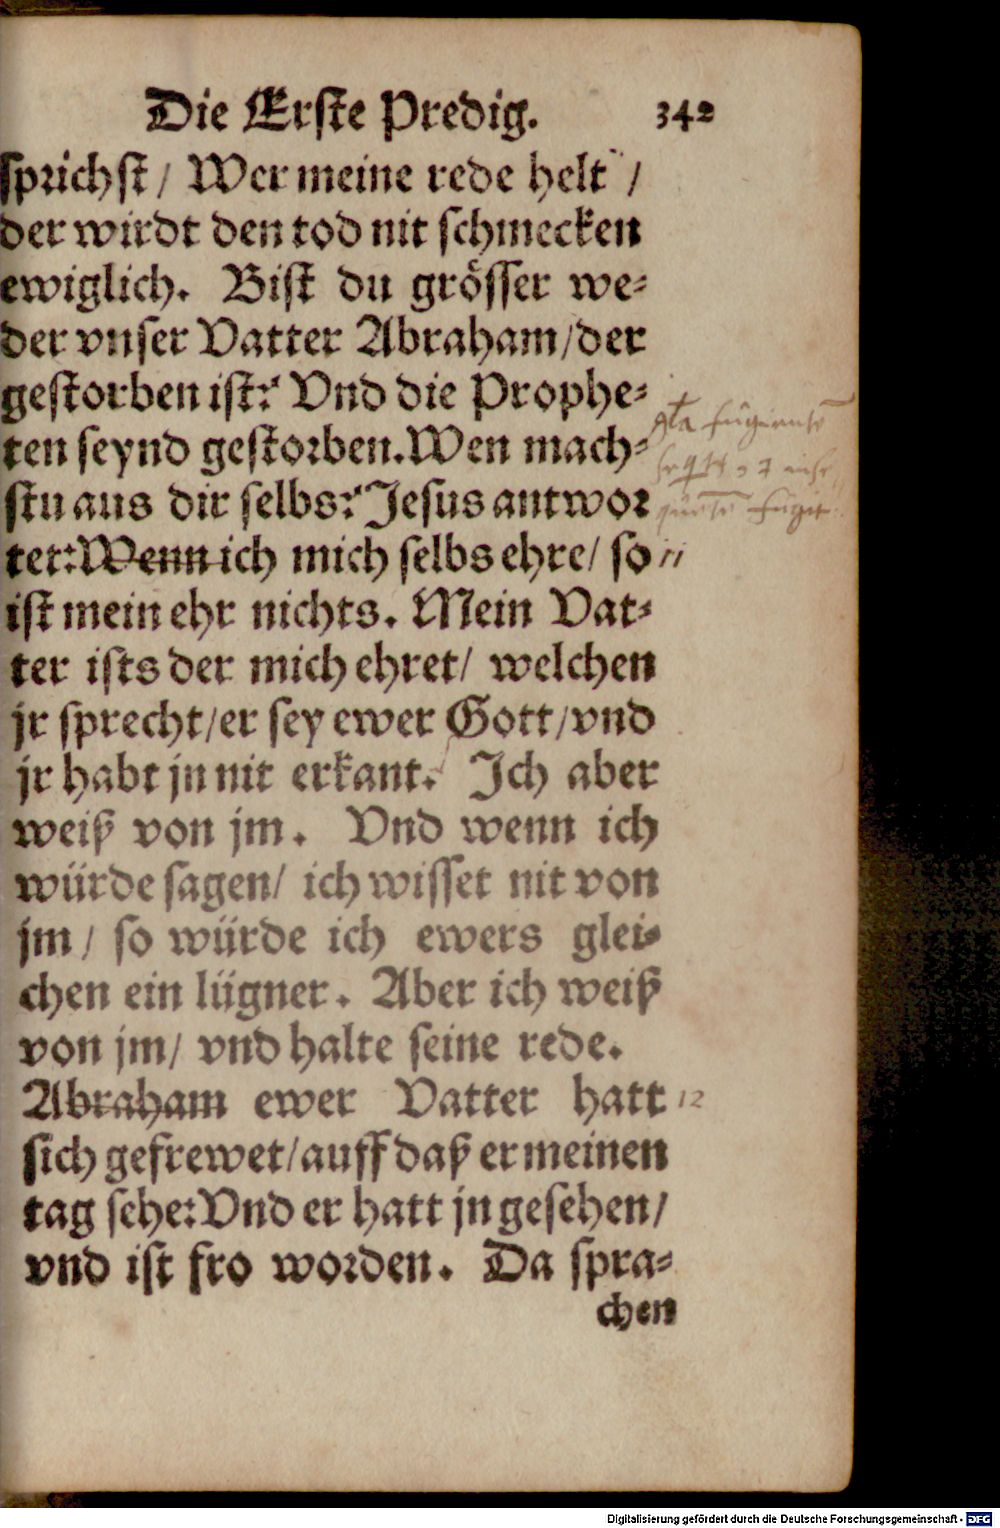 Die Erste Predig. 342
sprichst / Wer meine rede helt /
der wirdt den tod nit schmecken
ewiglich. Bist du grösser we-
der vnser Vatter Abraham/der
gestorben ist? Vnd die Prophe-
ten seynd gestorben. Wen mach-
stu aus dir selbs? Jesus antwor
tet: Wenn ich mich selbs ehre/ so 11
ist mein ehr nichts. Mein Vat-
ter ists der mich ehret/ welchen
jr sprecht/er sey ewer Gott/vnd
jr habt jn nit erkant. Ich aber
weiß von jm. Vnd wenn ich
würde sagen/ ich wisset nit von
jm/ so würde ich ewers glei-
chen ein lügner. Aber ich weiß
von jm/ vnd halte seine rede.
Abraham ewer Vatter hatt 12
sich gefrewet/auff daß er meinen
tag sehe: Vnd er hatt jn gesehen/
vnd ist fro worden. Da spra-
chen
Digitalisierung gefördert durch die Deutsche Forschungsgemeinschaft - DFG